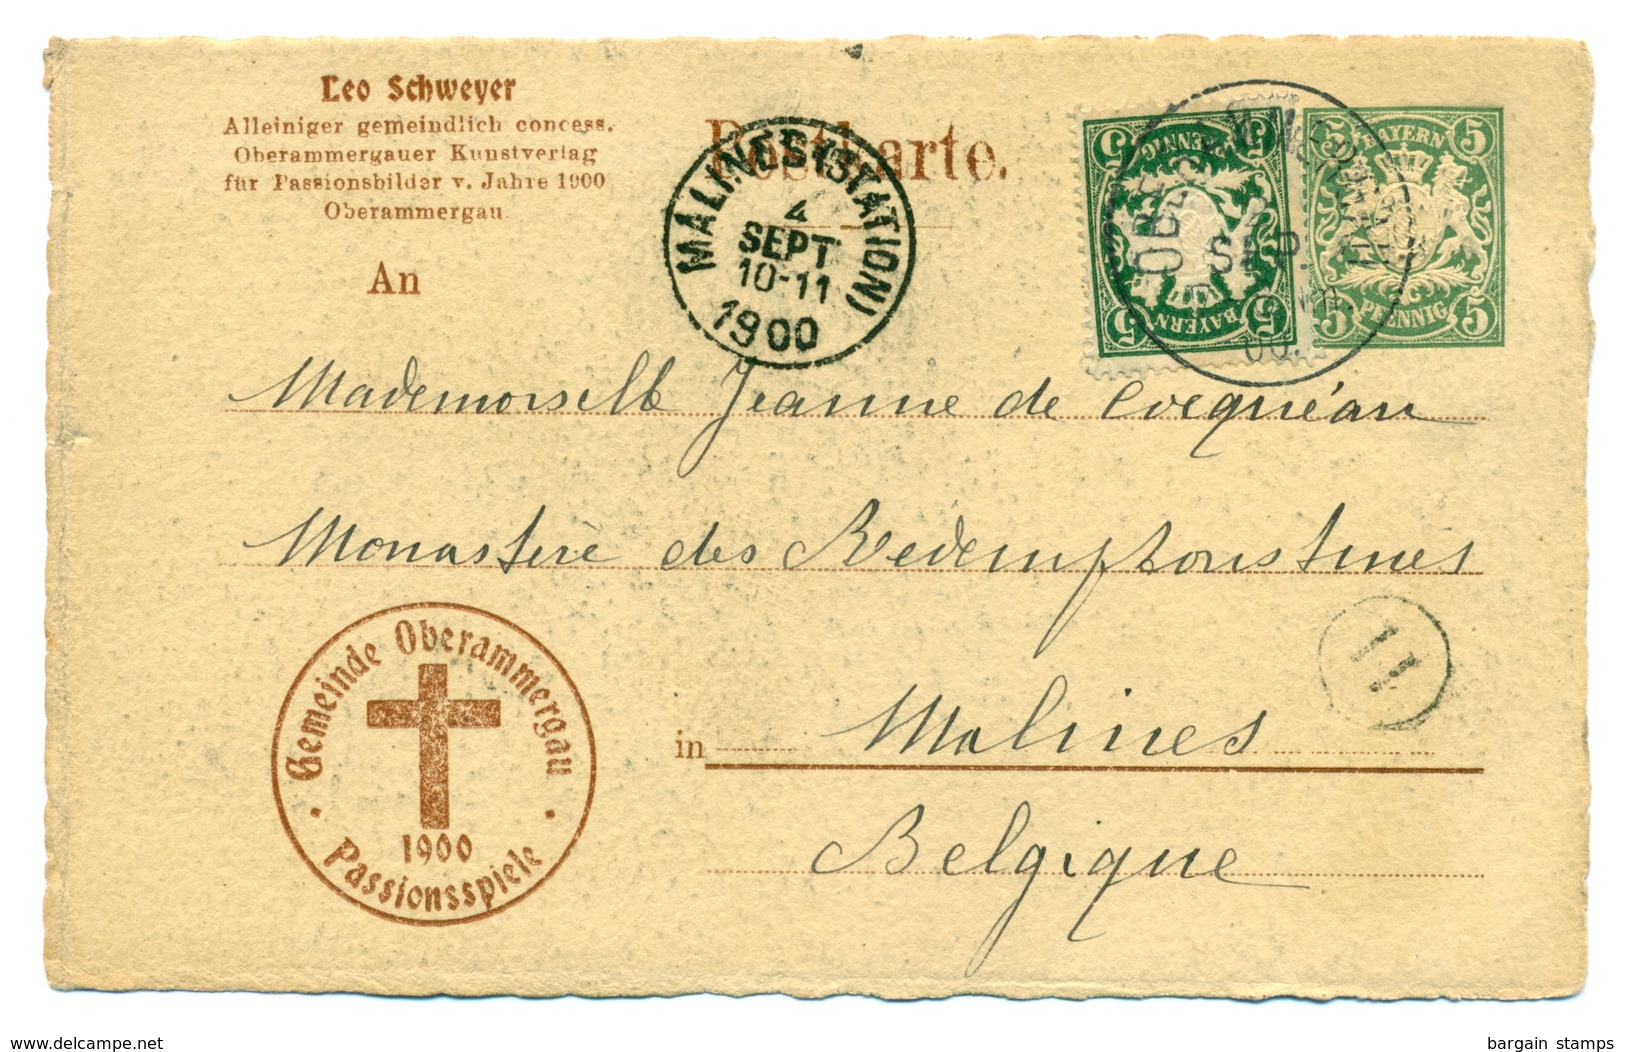 Leo Schweyer
Alleiniger gemeindlich concess.
Oberammergauer Kunstverlag
für Passionsbilder v. Jahre 1900
Oberammergau
Postkarte.
MALINES (STATION)
4
SEPT
10-11
1900
5 BAYERN 5
5 PFENNIG 5
5 BAYERN 5
5 PFENNIG 5
SEP.
00.
An
Mademoiselle Jeanne de Cocquéau
Monastère des Redemptoristines
11
in Malines
Belgique
Gemeinde Oberammergau
1900
Passionsspiele
www.delcampe.net
bargain stamps